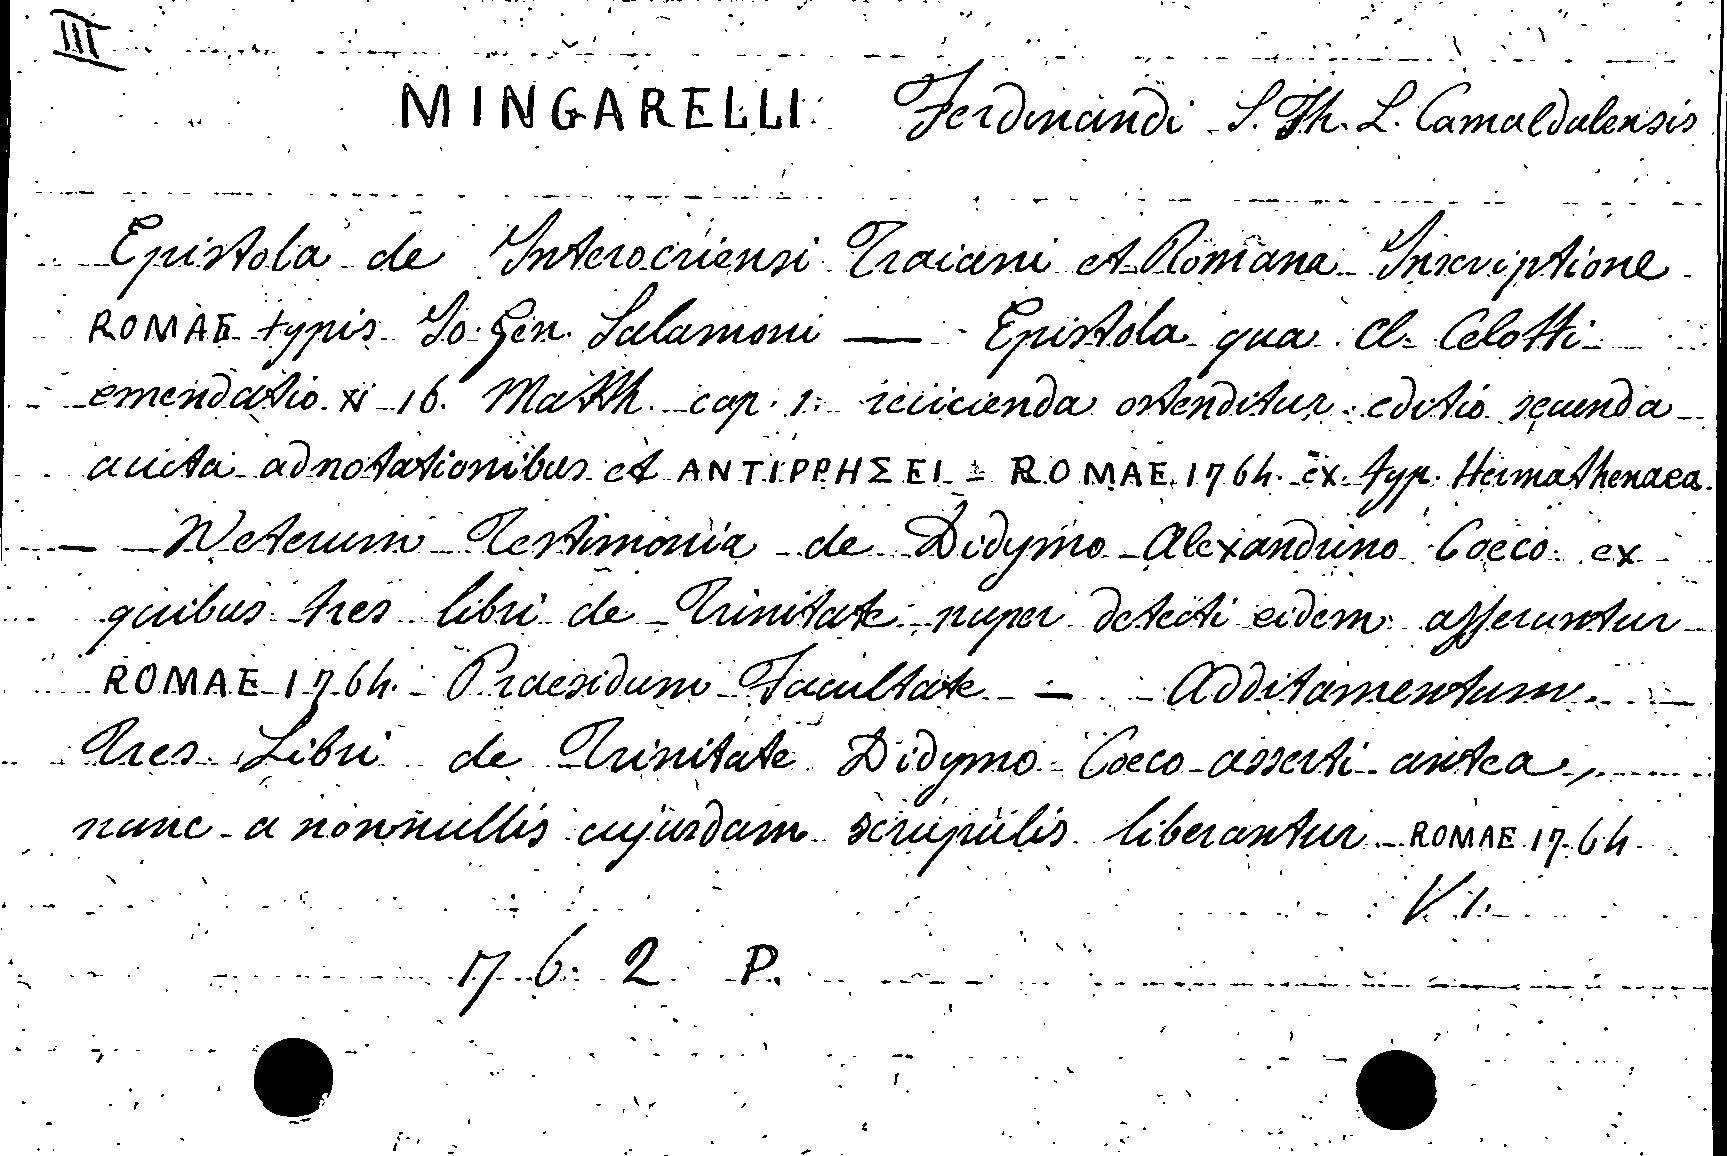 III
MINGARELLI Ferdinandi S. Th. L. Camaldulensis
Epistola de Interocriensi Traiani et Romana Inscriptione
ROMAE typis Jo. Gen. Salamoni — Epistola qua Cl. Celotti
emendatio 16. Matth. cap. 1. reiicienda ostenditur editio secunda
aucta adnotationibus et ΑΝΤΙΡΡΗΣΕΙ - ROMAE 1764. ex typ. Hermathenaea
— Weterum Testimonia de Didymo Alexandrino Coeco ex
quibus tres libri de Trinitate nuper detecti eidem asseruntur
ROMAE 1764. Praesidum Facultate — Additamentum —
Tres Libri de Trinitate Didymo Coeco asserti antea,
nunc a nonnullis cujusdam scrupulis liberantur ROMAE 1764
V 1.
17 6. 2 P.